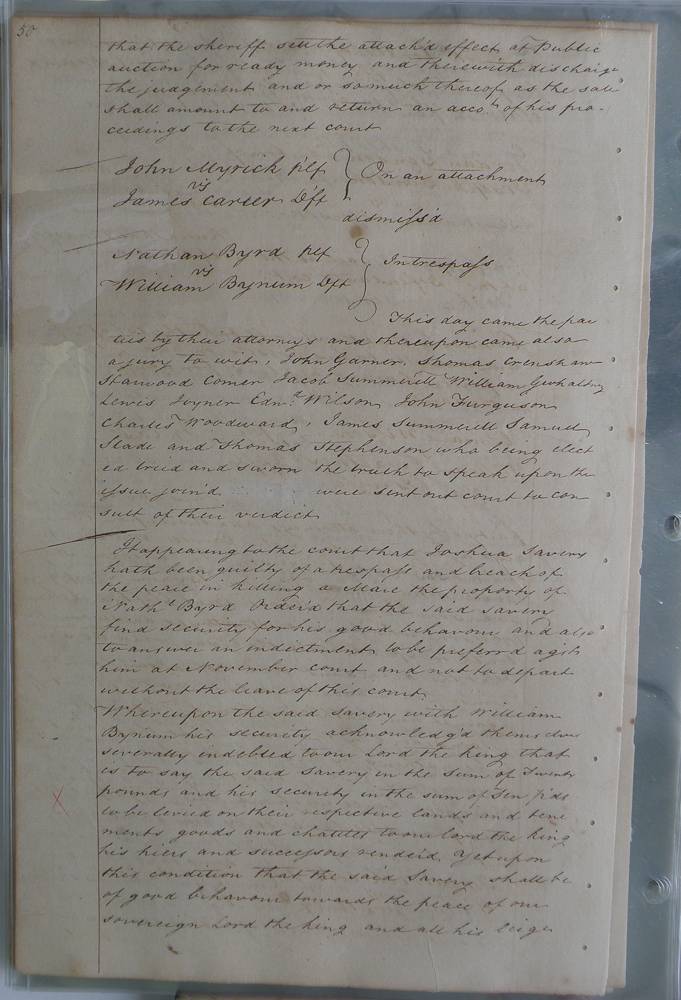 50
that the sheriff sell the attach'd effects at Public
auction for ready money and therewith discharge
the judgement and or so much thereof as the sale
shall amount to and return an acct. of his pro-
ceedings to the next court
John Myrick plf
vs
James Carter Dft
On an attachment
dismiss'd
Nathan Byrd plf
vs
William Bynum Dft
In trespass
This day came the par
ties by their attorneys and thereupon came also
a jury to wit, John Garner, Thomas Crenshaw
Comer Jacob Summerell William
Lewis Joyner Edwd. Wilson John Furguson
Charles Woodward, James Summerell Samuel
Slade and Thomas Stephenson who being elect
ed tried and sworn the truth to speak upon the
issue join'd were sent out court to con
sult of their verdict
It appearing to the court that Joshua Savery
hath been guilty of a trespass and breach of
the peace in killing a Mare the property of
Nathl. Byrd Order'd that the said Savery
find security for his good behavour and also
to answer an indictment to be preferr'd agst
him at November court and not to depart
without the leave of this court
Whereupon the said Savery with William
Bynum his security acknowledg'd themselves
severally indebted to our Lord the King that
is to say the said Savery in the sum of Twenty
pounds and his security in the sum of Ten p'ds
to be levied on their respective lands and tene
ments goods and chattles to our lord the King
his hiers and successors render'd, Yet upon
this condition that the said Savery shall be
of good behavour towards the peace of our
sovereign Lord the King and all his leige